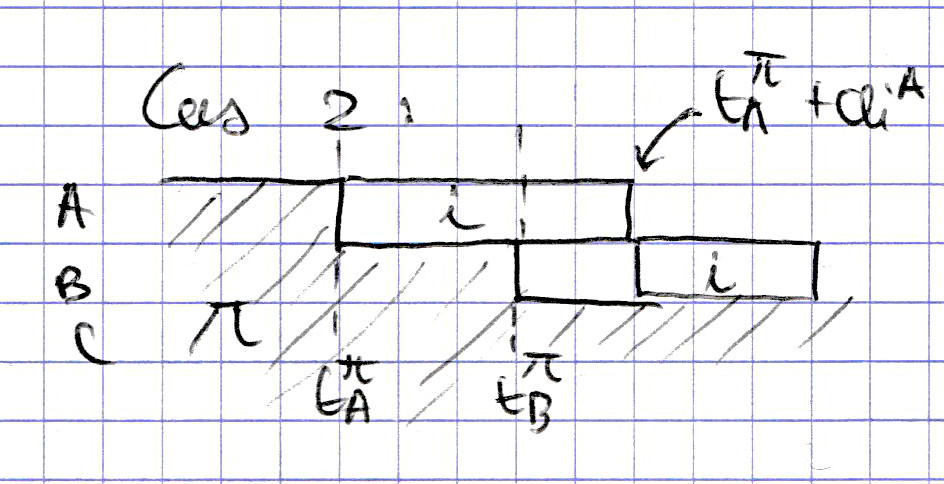 Cas 2 :
t_A^π + a_i^A
A i
B i
C π
t_A^π t_B^π